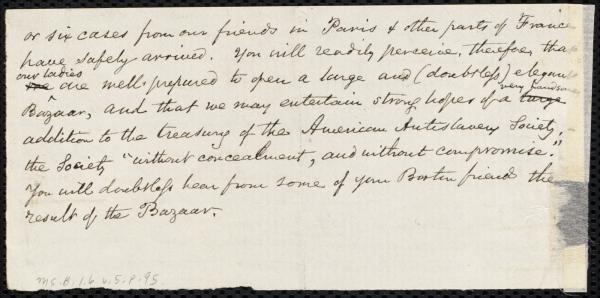 or six cases from our friends in Paris & other parts of France
have safely arrived. You will readily perceive, therefore, that
our ladies
we are well prepared to open a large and (doubtless) elegant
very handsome
Bazaar, and that we may entertain strong hopes of a large
addition to the treasury of the American Antislavery Society,
the Society "without concealment, and without compromise."
You will doubtless hear from some of your Boston friends the
result of the Bazaar.
MS.B.1.6 v.5.p.95